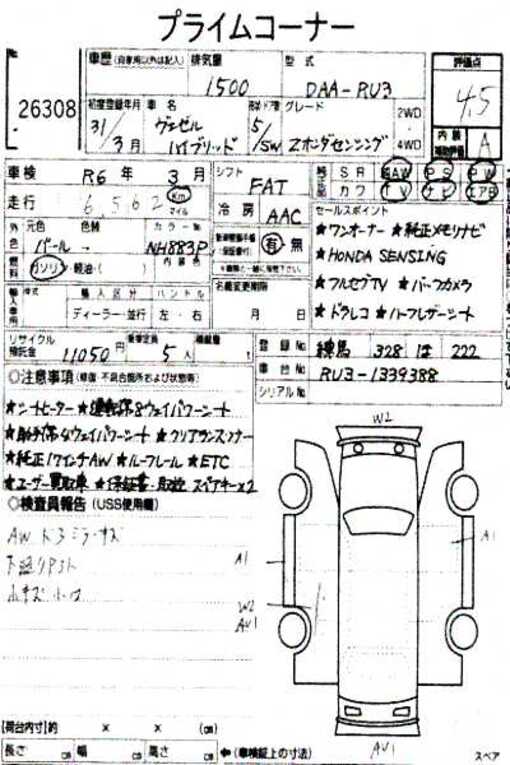 プライムコーナー
No 26308
車歴 (自家用以外は記入) 排気量 型式 評価点
1500 DAA-RU3 4.5
初度登録年月 車名 グレード 2WD
31/3月 ヴェゼル ハイブリッド 5/5W Zホンダセンシング 4WD
内装 補助評価 A
車検 R6年 3月 シフト FAT SR AW PS PW
走行 6,562 Km マイル 冷房 AAC カワ TV ナビ エアB
外色 元色 色替 カラーNo セールスポイント
パール NH883P 有・無 ★ワンオーナー ★純正メモリナビ
燃料 ガソリン・軽油・( ) 内装色 ★HONDA SENSING
名義変更期限 ★フルセグTV ★バックカメラ
輸入区分 ハンドル 月 日 ★ドラレコ ★ハーフレザーシート
ディーラー・並行 左・右
リサイクル預託金 11050円 乗車定員 5人 積載量 t 登録No 練馬 328 は 222
車台No RU3-1339388
シリアルNo
○注意事項 (修復・不具合箇所および状態等)
★シートヒーター ★運転席8ウェイパワーシート
★助手席4ウェイパワーシート ★クリアランスソナー
★純正17インチAW ★ルーフレール ★ETC
★ユーザー買取車 ★保証書・取説 スペアキー×2
○検査員報告 (USS使用欄)
AW ドアミラーキズ
小キズ
W2
A1
A1
W2
AV1
AV1
[荷台内寸]約 × × (cm)
長さ cm 幅 cm 高さ cm ←(車検証上の寸法)
スペア